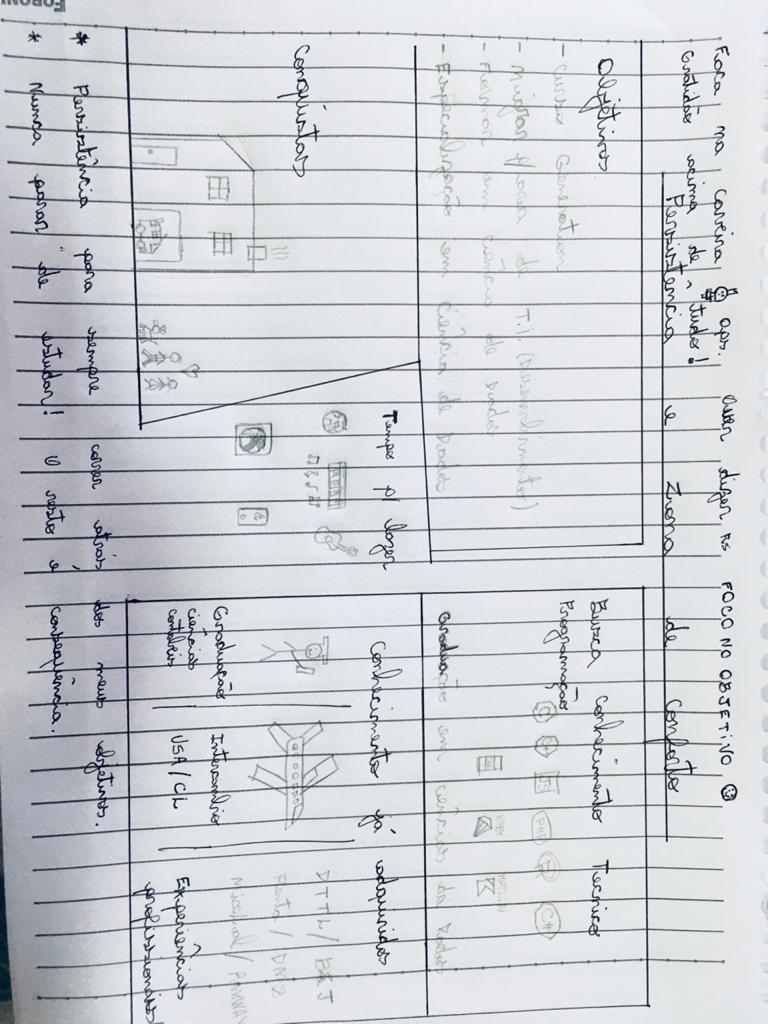 Foca na carreira ops. Quer dizer rs FOCO NO OBJETIVO
Gratidão acima de tudo!
Persistência e Zona de conforto
Objetivos
- Curso Generation
- Migrar p/ area de T.I. (Desenvolvimento)
- Formar em ciência de Dados
- Especialização em Ciência de Dados
Busca Conhecimento Tecnico
Programação
C C+ JS PHP C#
HTML KOTLIN
Graduação em ciências da Dados
Conquistas
Tempo p/ lazer
Conhecimento já adquiridos
Graduação
ciências
contabeis
Intercambio
USA/CL
DTTL/
/DMS
/AMWAY
Experiências
profissionais
* Persistência para sempre correr atrás dos meus objetivos.
* Nunca parar de estudar! O resto é consequência.
FORONI